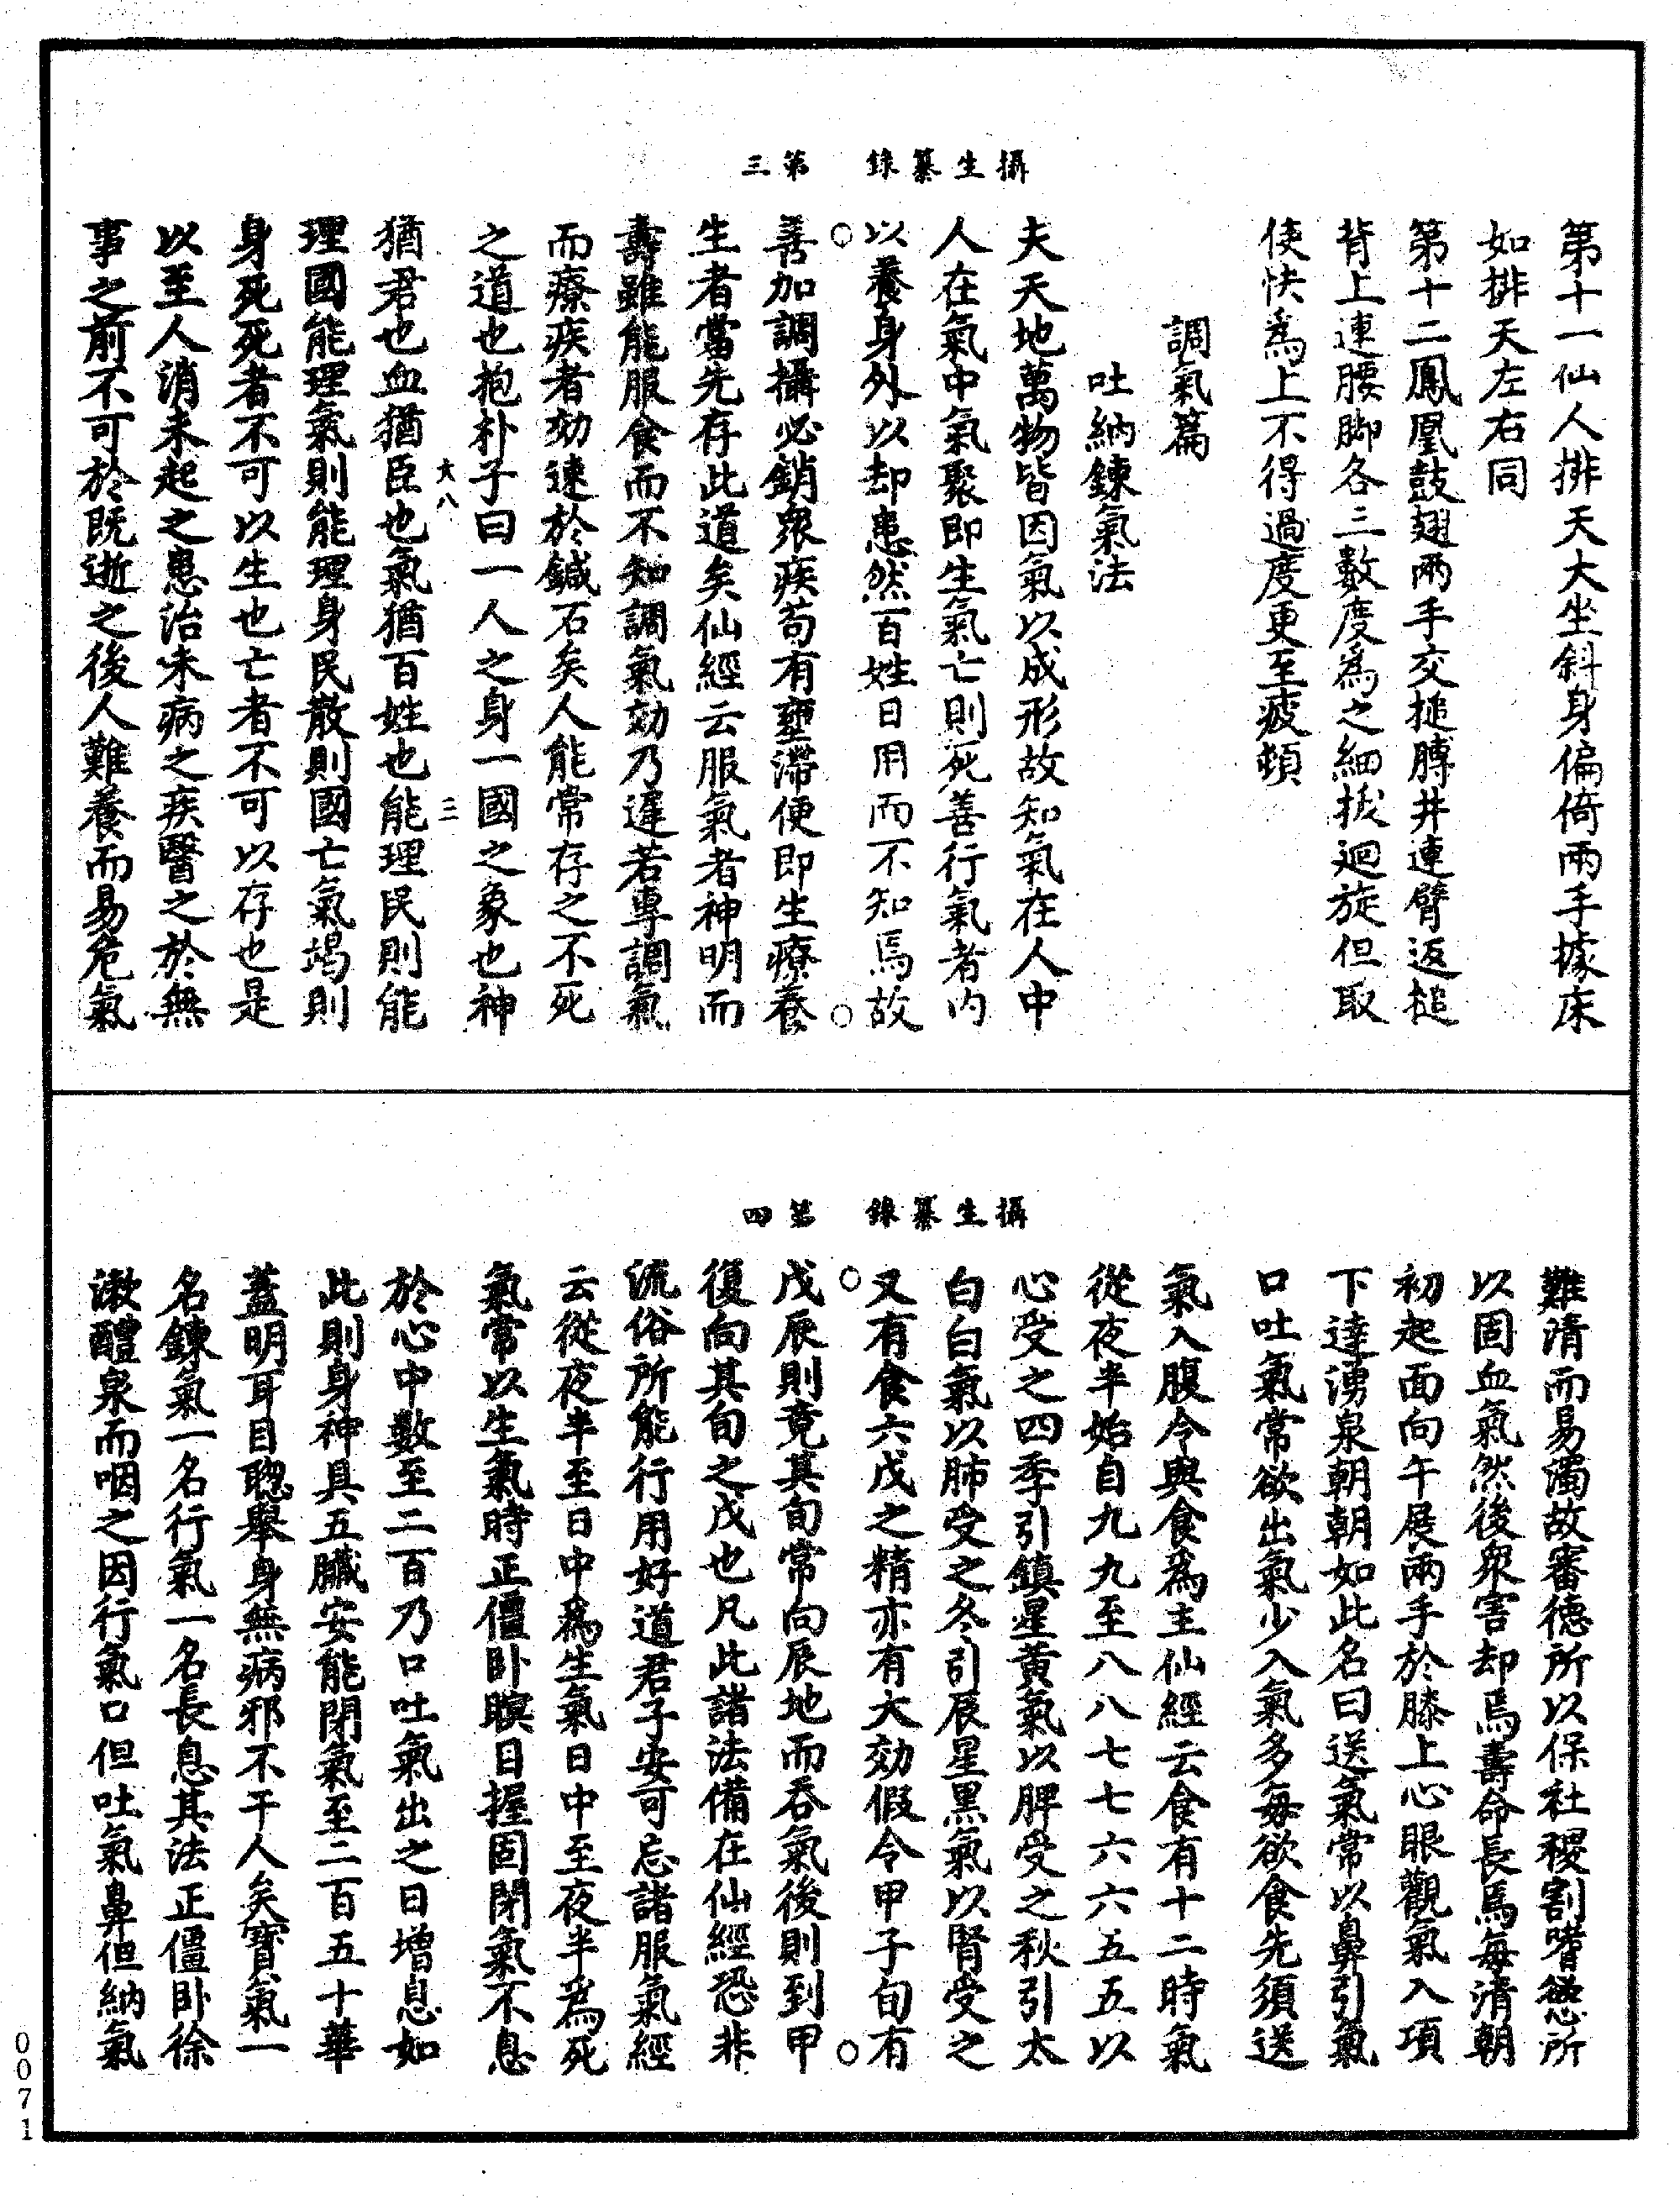 攝生纂錄　第三
第十一仙人排天大坐斜身偏倚兩手據床
如排天左右同
第十二鳳凰鼓翅兩手交搥膊井連臂返搥
背上連腰脚各三數度爲之細拔迴旋但取
使快爲上不得過度更至疲頓
調氣篇
吐納鍊氣法
夫天地萬物皆因氣以成形故知氣在人中
人在氣中氣聚即生氣亡則死善行氣者内
以養身外以却患然百姓日用而不知焉故
善加調攝必銷衆疾苟有壅滯便即生療養
生者當先存此道矣仙經云服氣者神明而
壽雖能服食而不知調氣効乃遲若專調氣
而療疾者効速於鍼石矣人能常存之不死
之道也抱朴子曰一人之身一國之象也神
大八　三
猶君也血猶臣也氣猶百姓也能理民則能
理國能理氣則能理身民散則國亡氣竭則
身死死者不可以生也亡者不可以存也是
以至人消未起之患治未病之疾醫之於無
事之前不可於既逝之後人難養而易危氣
攝生纂錄　第四
難清而易濁故審德所以保社稷割嗜慾所
以固血氣然後衆害却焉壽命長焉每清朝
初起面向午展兩手於膝上心眼觀氣入項
下達湧泉朝朝如此名曰送氣常以鼻引氣
口吐氣常欲出氣少入氣多每欲食先須送
氣入腹令與食爲主仙經云食有十二時氣
從夜半始自九九至八八七七六六五五以
心受之四季引鎮星黃氣以脾受之秋引太
白白氣以肺受之冬引辰星黑氣以腎受之
又有食六戊之精亦有大効假令甲子旬有
戊辰則竟其旬常向辰地而吞氣後則到甲
復向其旬之戊也凡此諸法備在仙經恐非
流俗所能行用好道君子安可忘諸服氣經
云從夜半至日中爲生氣日中至夜半爲死
氣常以生氣時正僵卧瞑目握固閉氣不息
於心中數至二百乃口吐氣出之日增息如
此則身神具五臟安能閉氣至二百五十華
蓋明耳目聰舉身無病邪不干人矣寳氣一
名鍊氣一名行氣一名長息其法正僵卧徐
漱醴泉而咽之因行氣口但吐氣鼻但納氣
0071